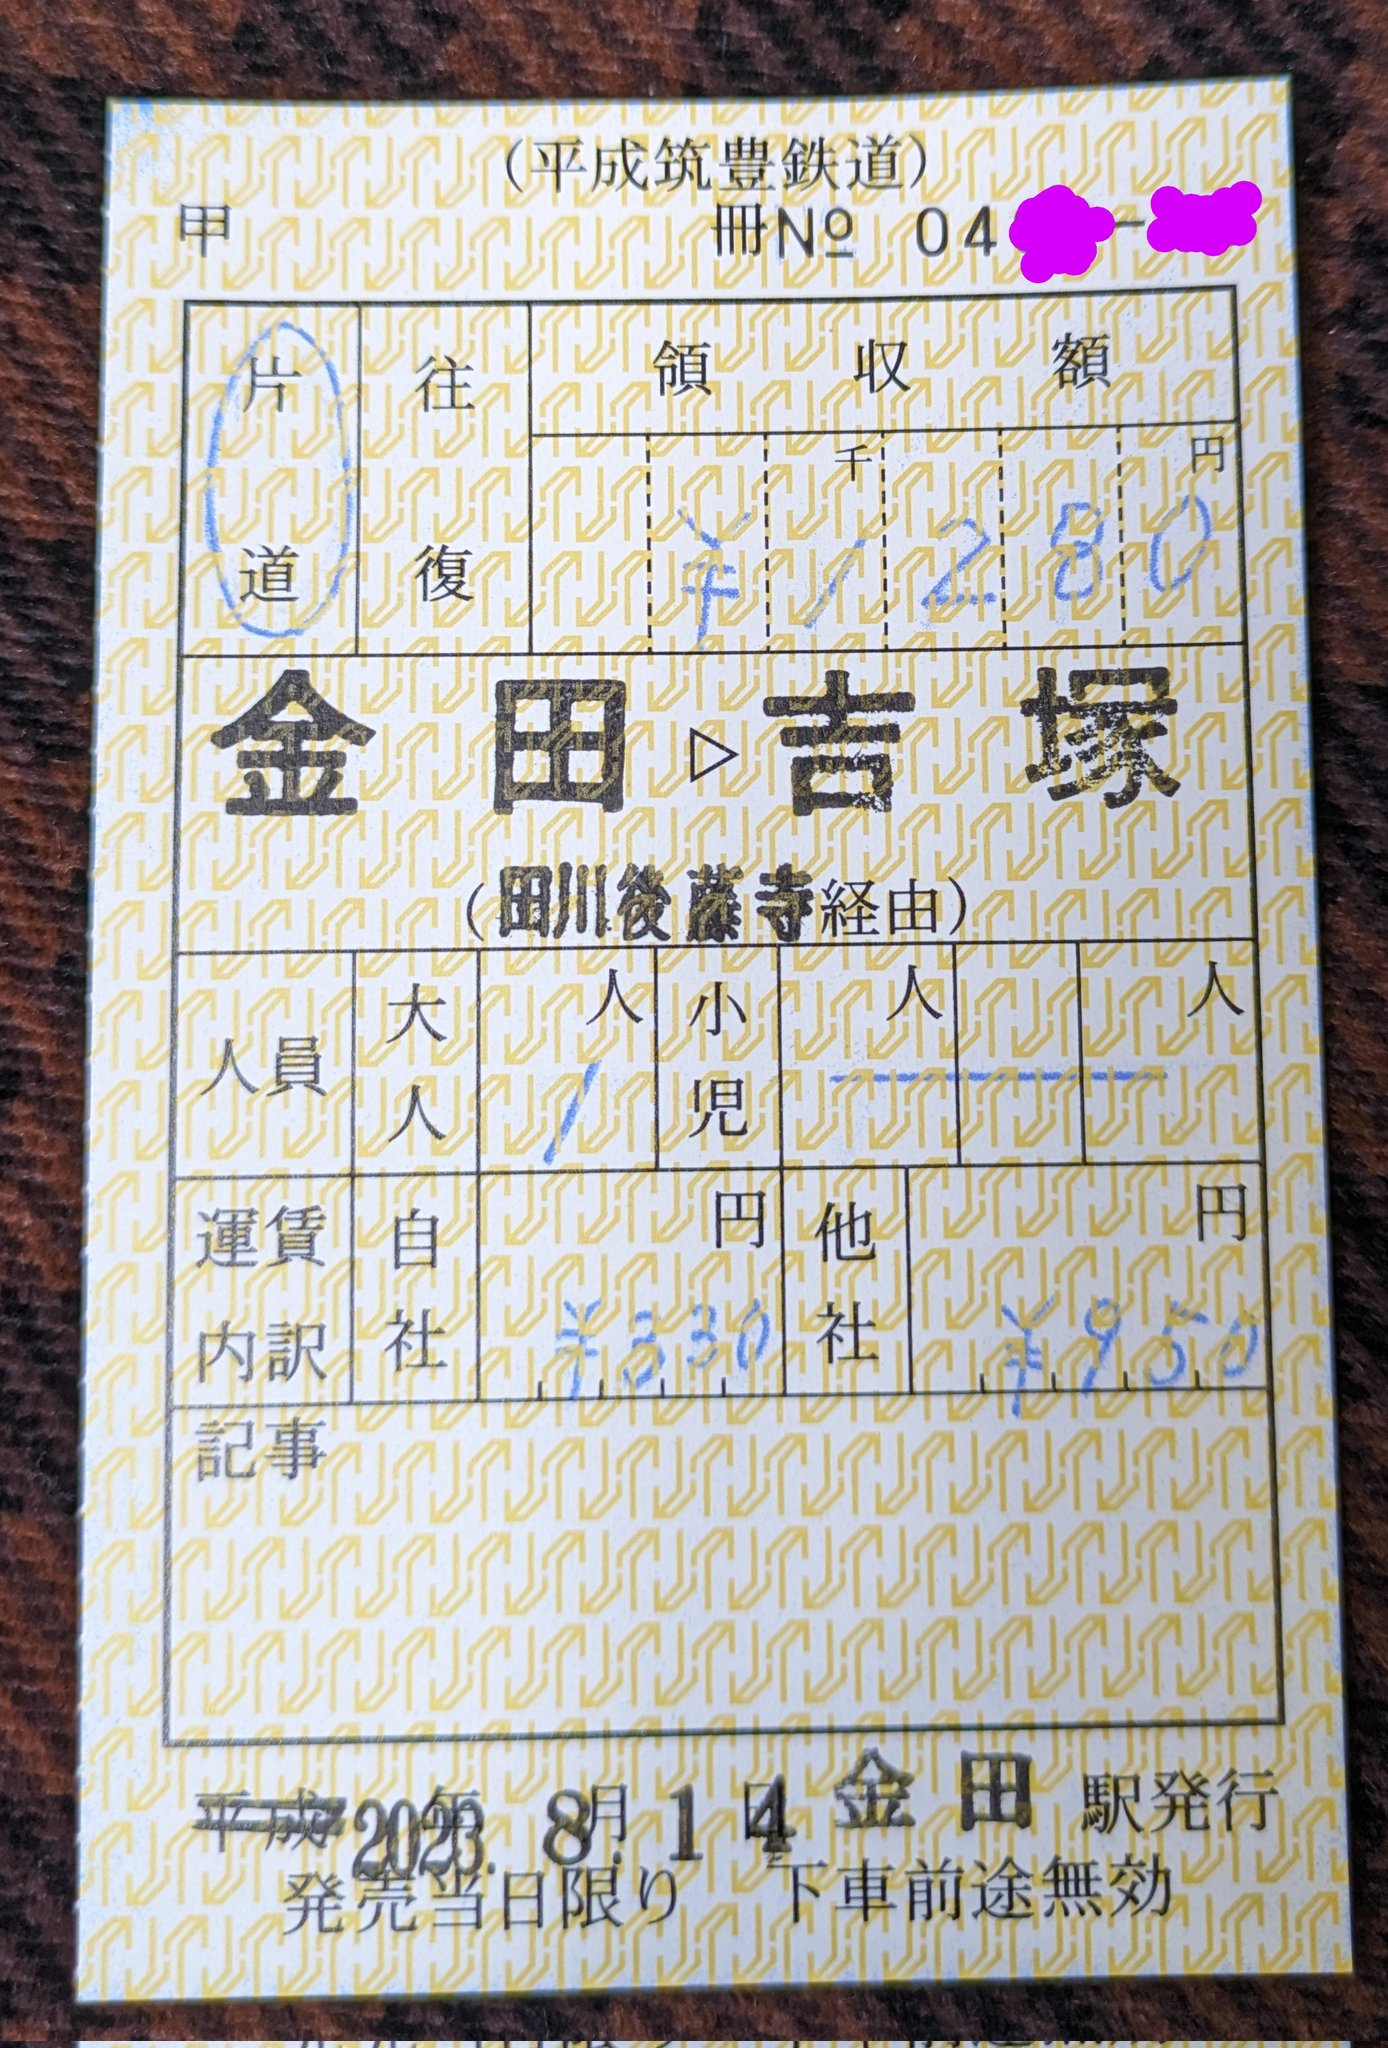 （平成筑豊鉄道）
甲 冊№ 04 -
片道 往復 領収額
千 円
¥1280
金田▷吉塚
（田川後藤寺経由）
人員 大人 1人 小児 人 人
運賃内訳 自社 円 ¥330 他社 円 ¥950
記事
平成 2023.年 8.月 14日 金田駅発行
発売当日限り 下車前途無効